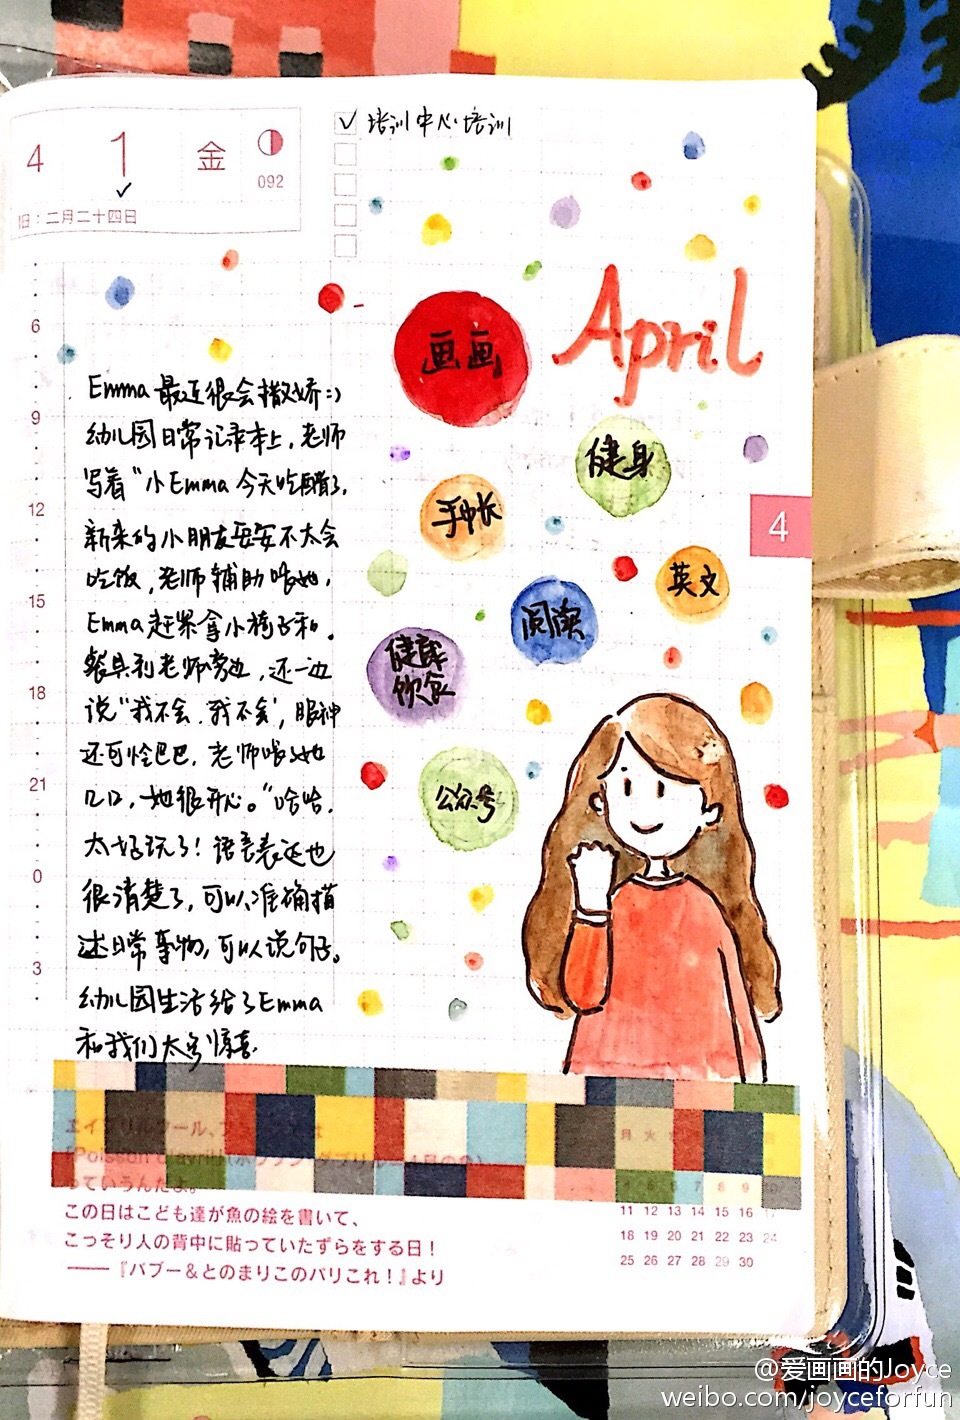 4 1 金
092
旧：二月二十四日
✓ 培训中心培训
April
画画
健身
手帐
英文
阅读
健康
饮食
公众号
4
6
9
12
15
18
21
0
3
Emma 最近很会撒娇:)
幼儿园日常记录本上，老师
写着“小Emma 今天吃醋了，
新来的小朋友安安不太会
吃饭，老师辅助喂她，
Emma赶紧拿小椅子和
餐具到老师旁边，还一边
说“我不会，我不会”，眼神
还可怜巴巴，老师喂了她
几口，她很开心。”哈哈，
太好玩了！语言表达也
很清楚了，可以准确描
述日常事物，可以说句子。
幼儿园生活给了Emma
和我们太多惊喜.
エイプリルフール、フランスでは
っていうんだよ。
この日はこども達が魚の絵を書いて、
こっそり人の背中に貼っていたずらをする日！
——『バブー＆とのまりこのパリこれ！』より
月 火
4 5 6 7 8 9
11 12 13 14 15 16 17
18 19 20 21 22 23 24
25 26 27 28 29 30
@爱画画的Joyce
weibo.com/joyceforfun